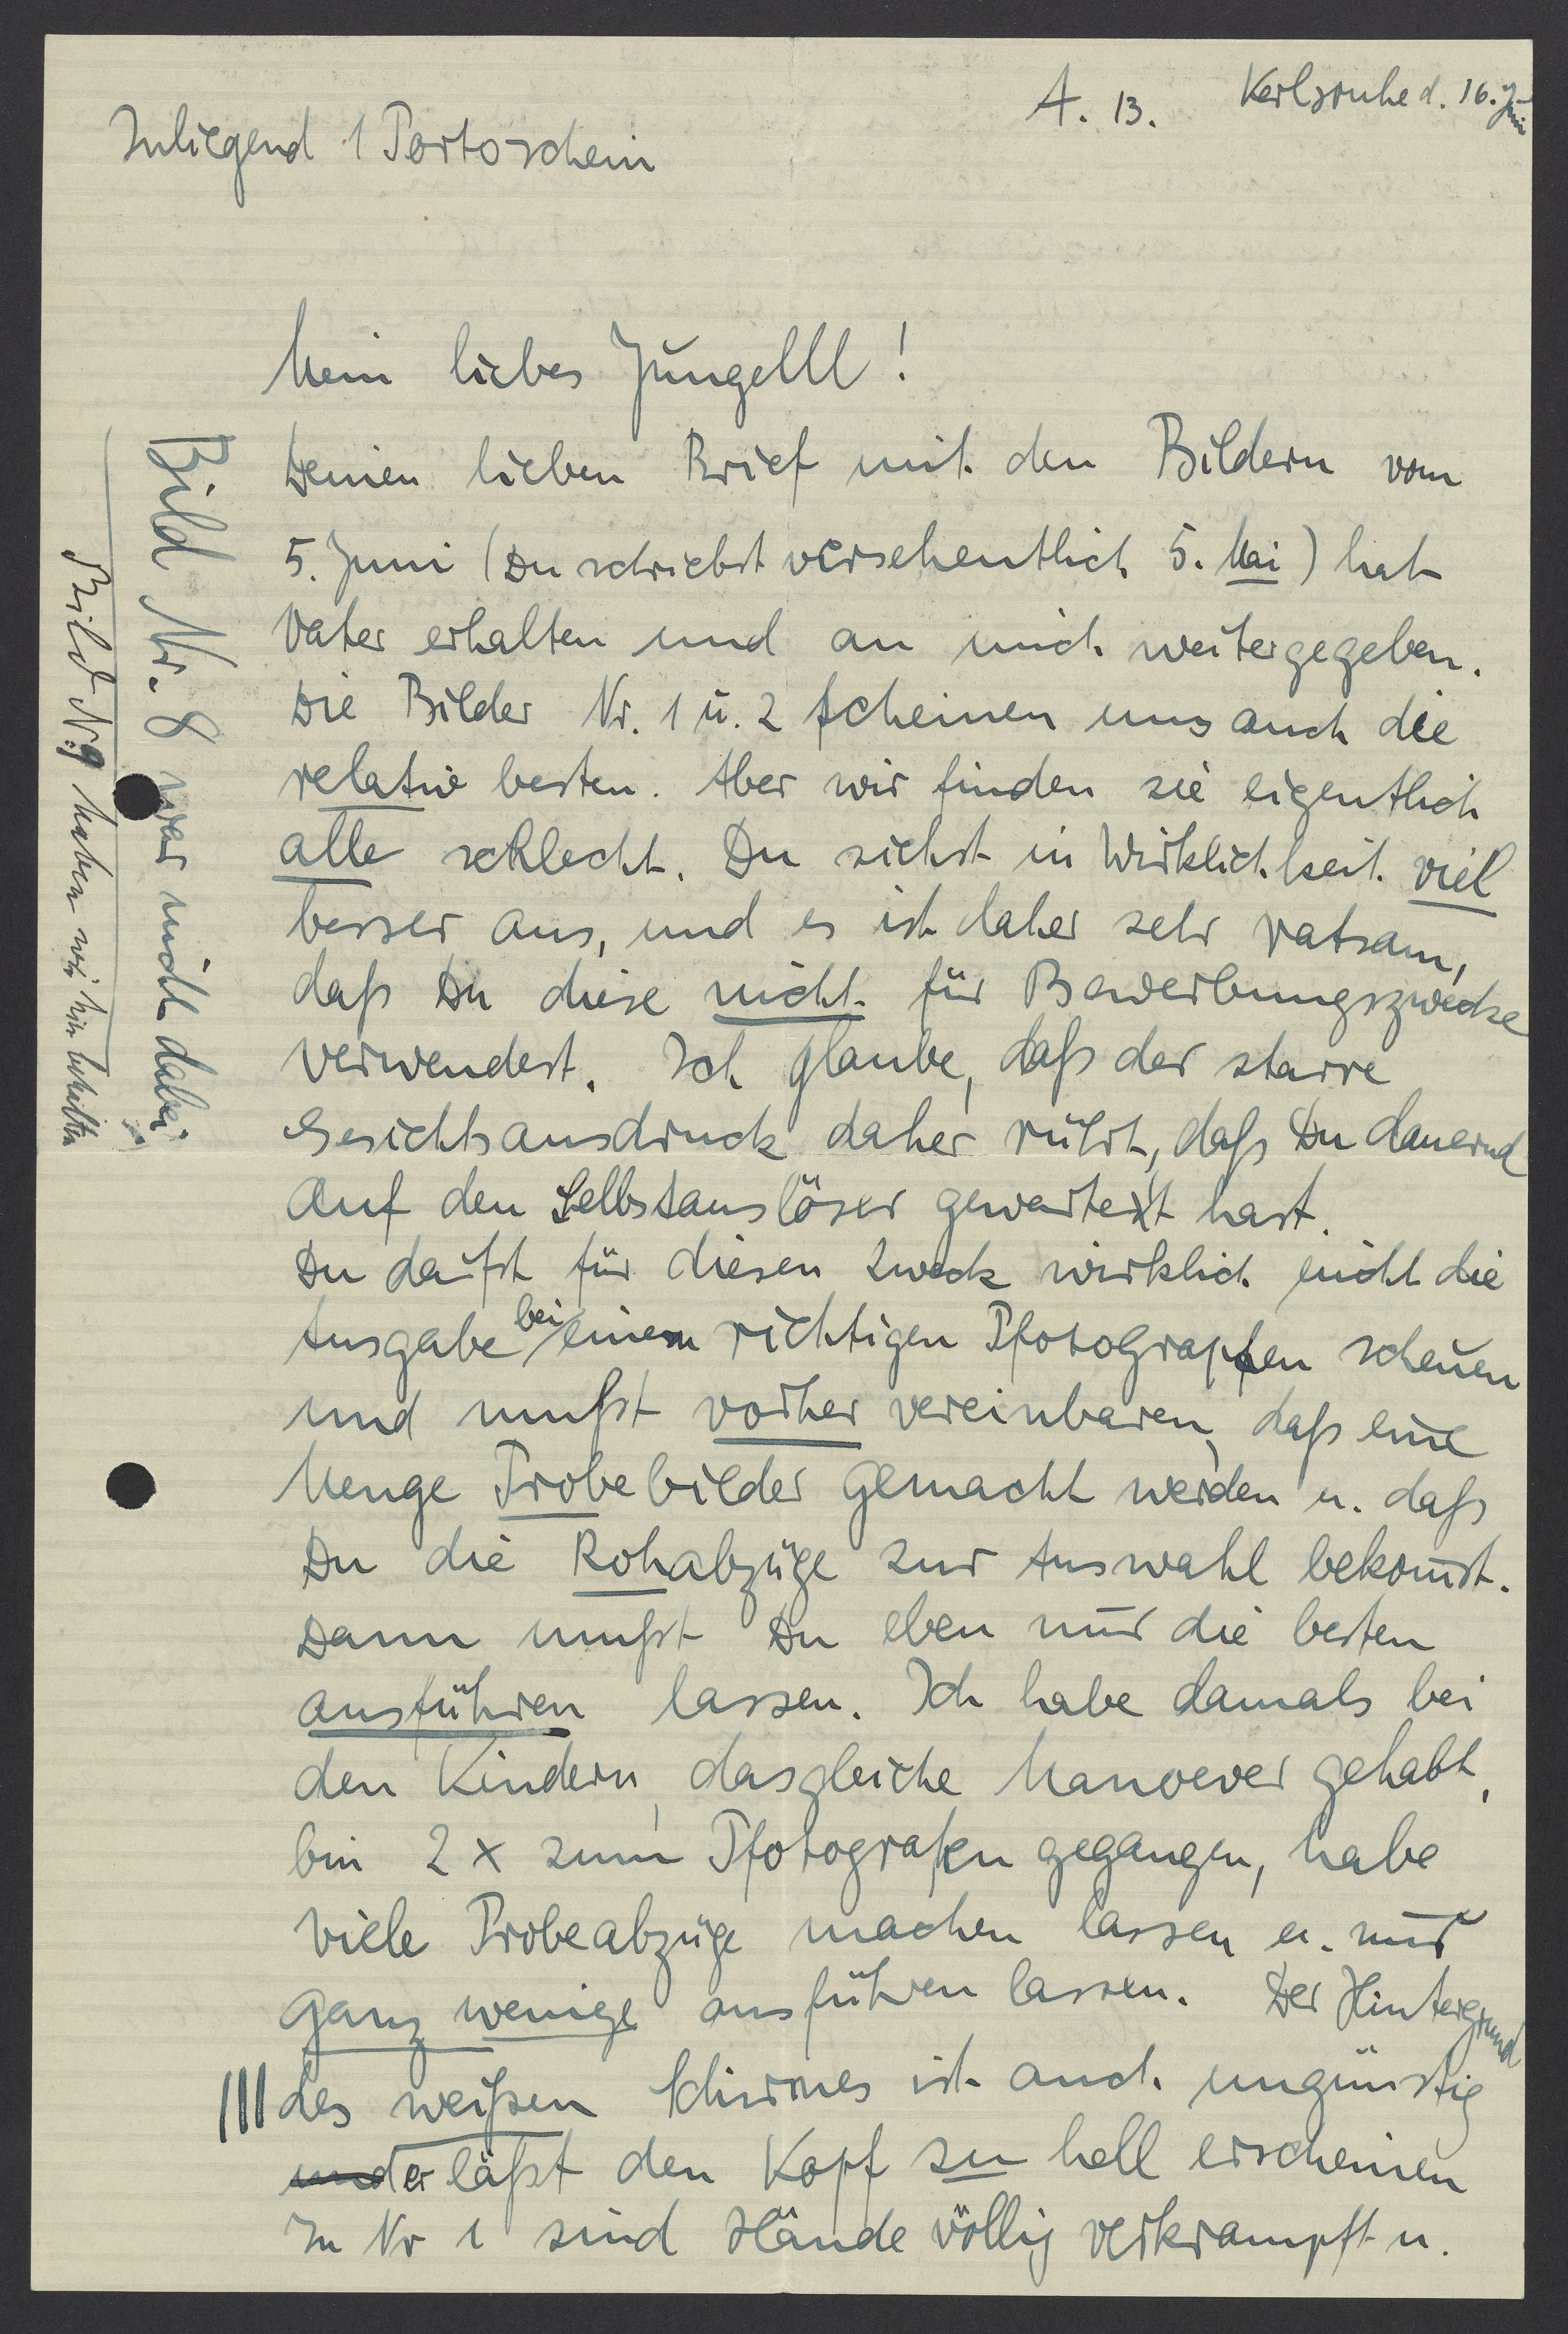 A. 13. Karlsruhe d. 16. Juni
Inliegend 1 Portoschein
Mein liebes Jüngelll!
Deinen lieben Brief mit den Bildern vom
5. Juni (Du schriebst versehentlich 5. Mai) hat
Vater erhalten und an mich weitergegeben.
Die Bilder Nr. 1 u. 2 scheinen uns auch die
relativ besten. Aber wir finden sie eigentlich
alle schlecht. Du siehst in Wirklichkeit viel
besser aus, und es ist daher sehr ratsam,
daß Du diese nicht für Bewerbungszwecke
verwendest. Ich glaube, daß der starre
Gesichtsausdruck daher rührt, daß Du dauernd
auf den Selbstauslöser gewartet hast.
Du darfst für diesen Zweck wirklich nicht die
Ausgabe bei einem richtigen Photographen scheuen
und mußt vorher vereinbaren, daß eine
Menge Probebilder gemacht werden u. daß
Du die Rohabzüge zur Auswahl bekomst.
Dann mußt Du eben nur die besten
ausführen lassen. Ich habe damals bei
den Kindern, dasgleiche Manoever gehabt,
bin 2 x zum Photografen gegangen, habe
viele Probeabzüge machen lassen u. nur
ganz wenige ausführen lassen. Der Hintergrund
des weißen Schirmes ist auch ungünstig
und er läßt den Kopf zu hell erscheinen
In Nr 1 sind Hände völlig verkrampft u.
Bild Nr. 8 war nicht dabei
Bild Nr. 9 haben wir hier behalten